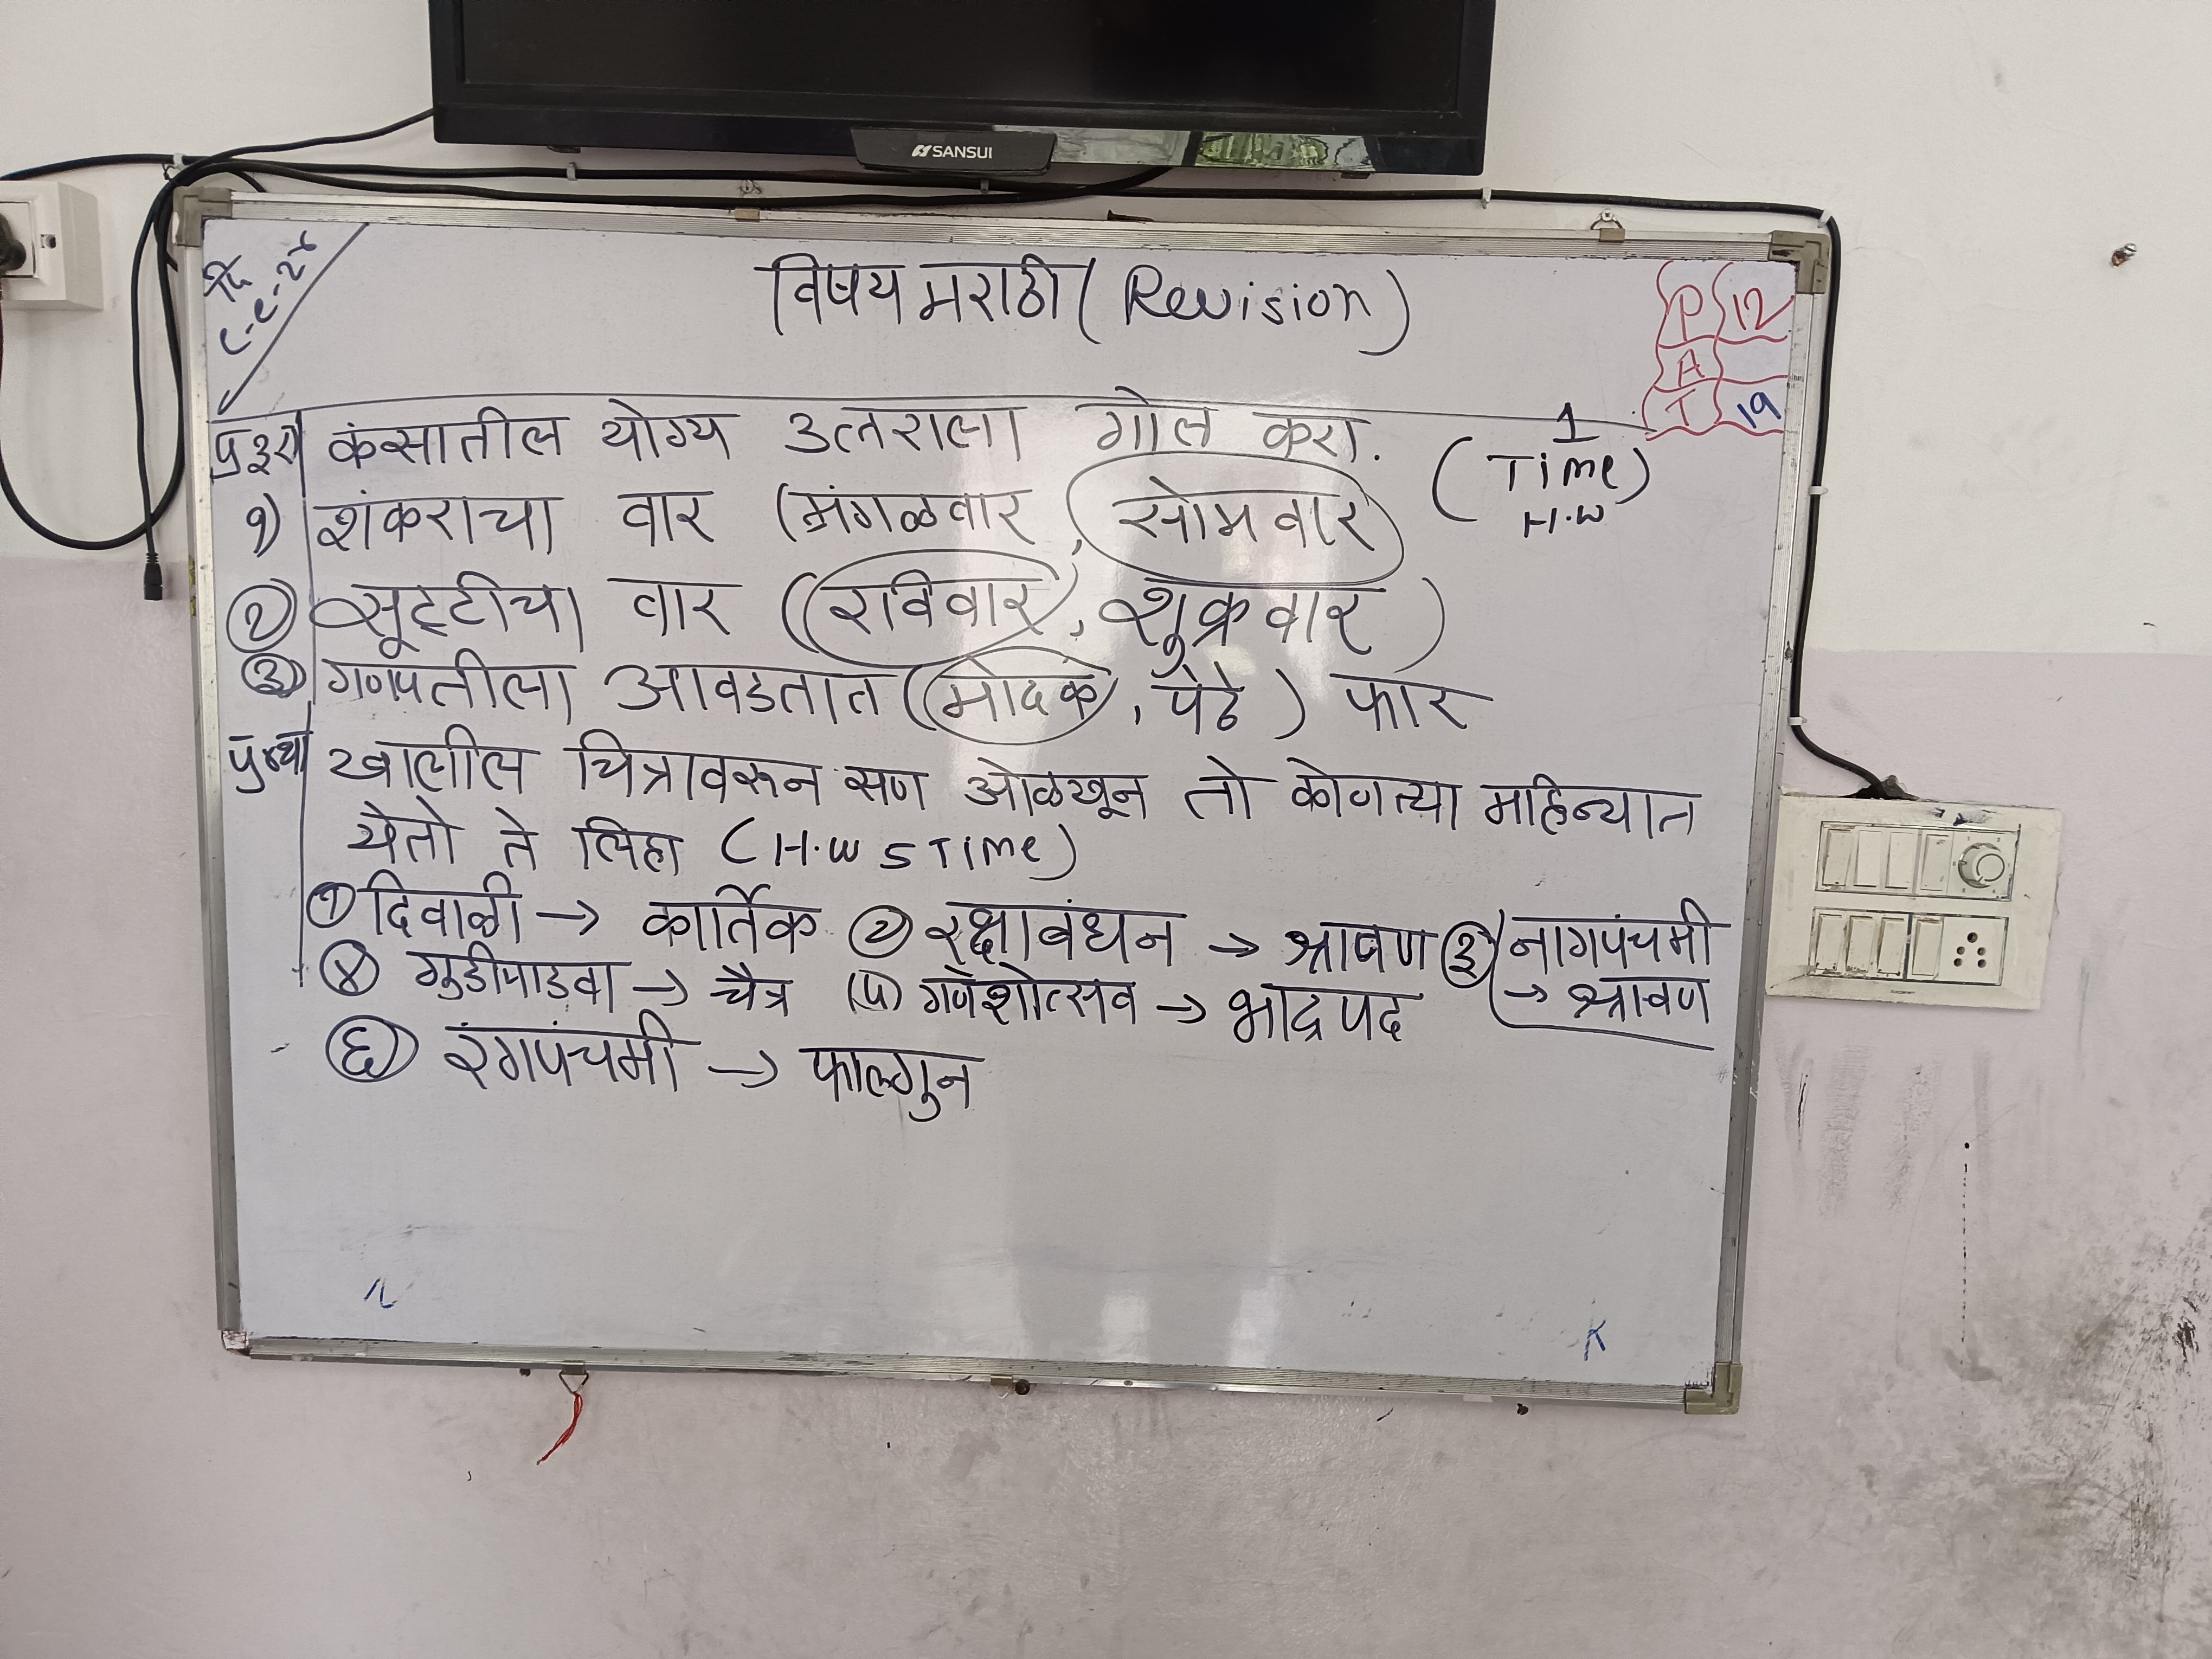 SANSUI
विषय मराठी (Revision)
P 12
A
T 19
प्र ३रा कंसातील योग्य उत्तराला गोल करा. (1 Time H.W)
१) शंकराचा वार (मंगळवार, सोमवार
२) सूट्टीचा वार (रविवार, शुक्रवार)
३) गणपतीला आवडतात (मोदक, पेढे) फार
प्र ४था खालील चित्रावरून सण ओळखून तो कोणत्या महिन्यात
येतो ते लिहा (H.W 5 Time)
१ दिवाळी → कार्तिक २ रक्षाबंधन → श्रावण ३ नागपंचमी → श्रावण
४ गुडीपाडवा → चैत्र (५) गणेशोत्सव → भाद्रपद
६ रंगपंचमी → फाल्गुन